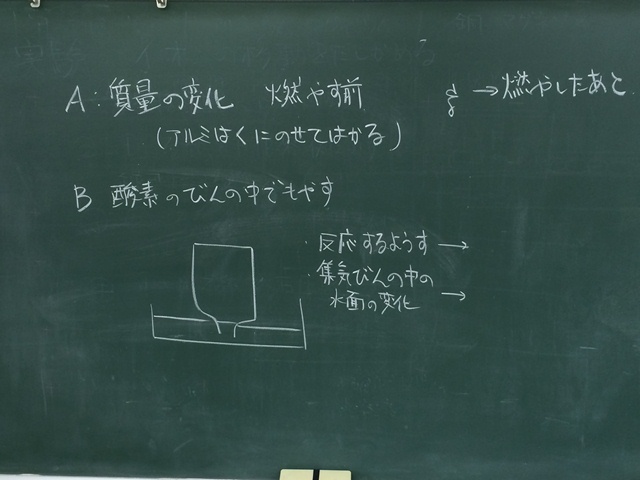 A:質量の変化 燃やす前 g →燃やしたあと
(アルミはくにのせてはかる)
B 酸素のびんの中でもやす
・反応するようす→
・集気びんの中の
水面の変化 →